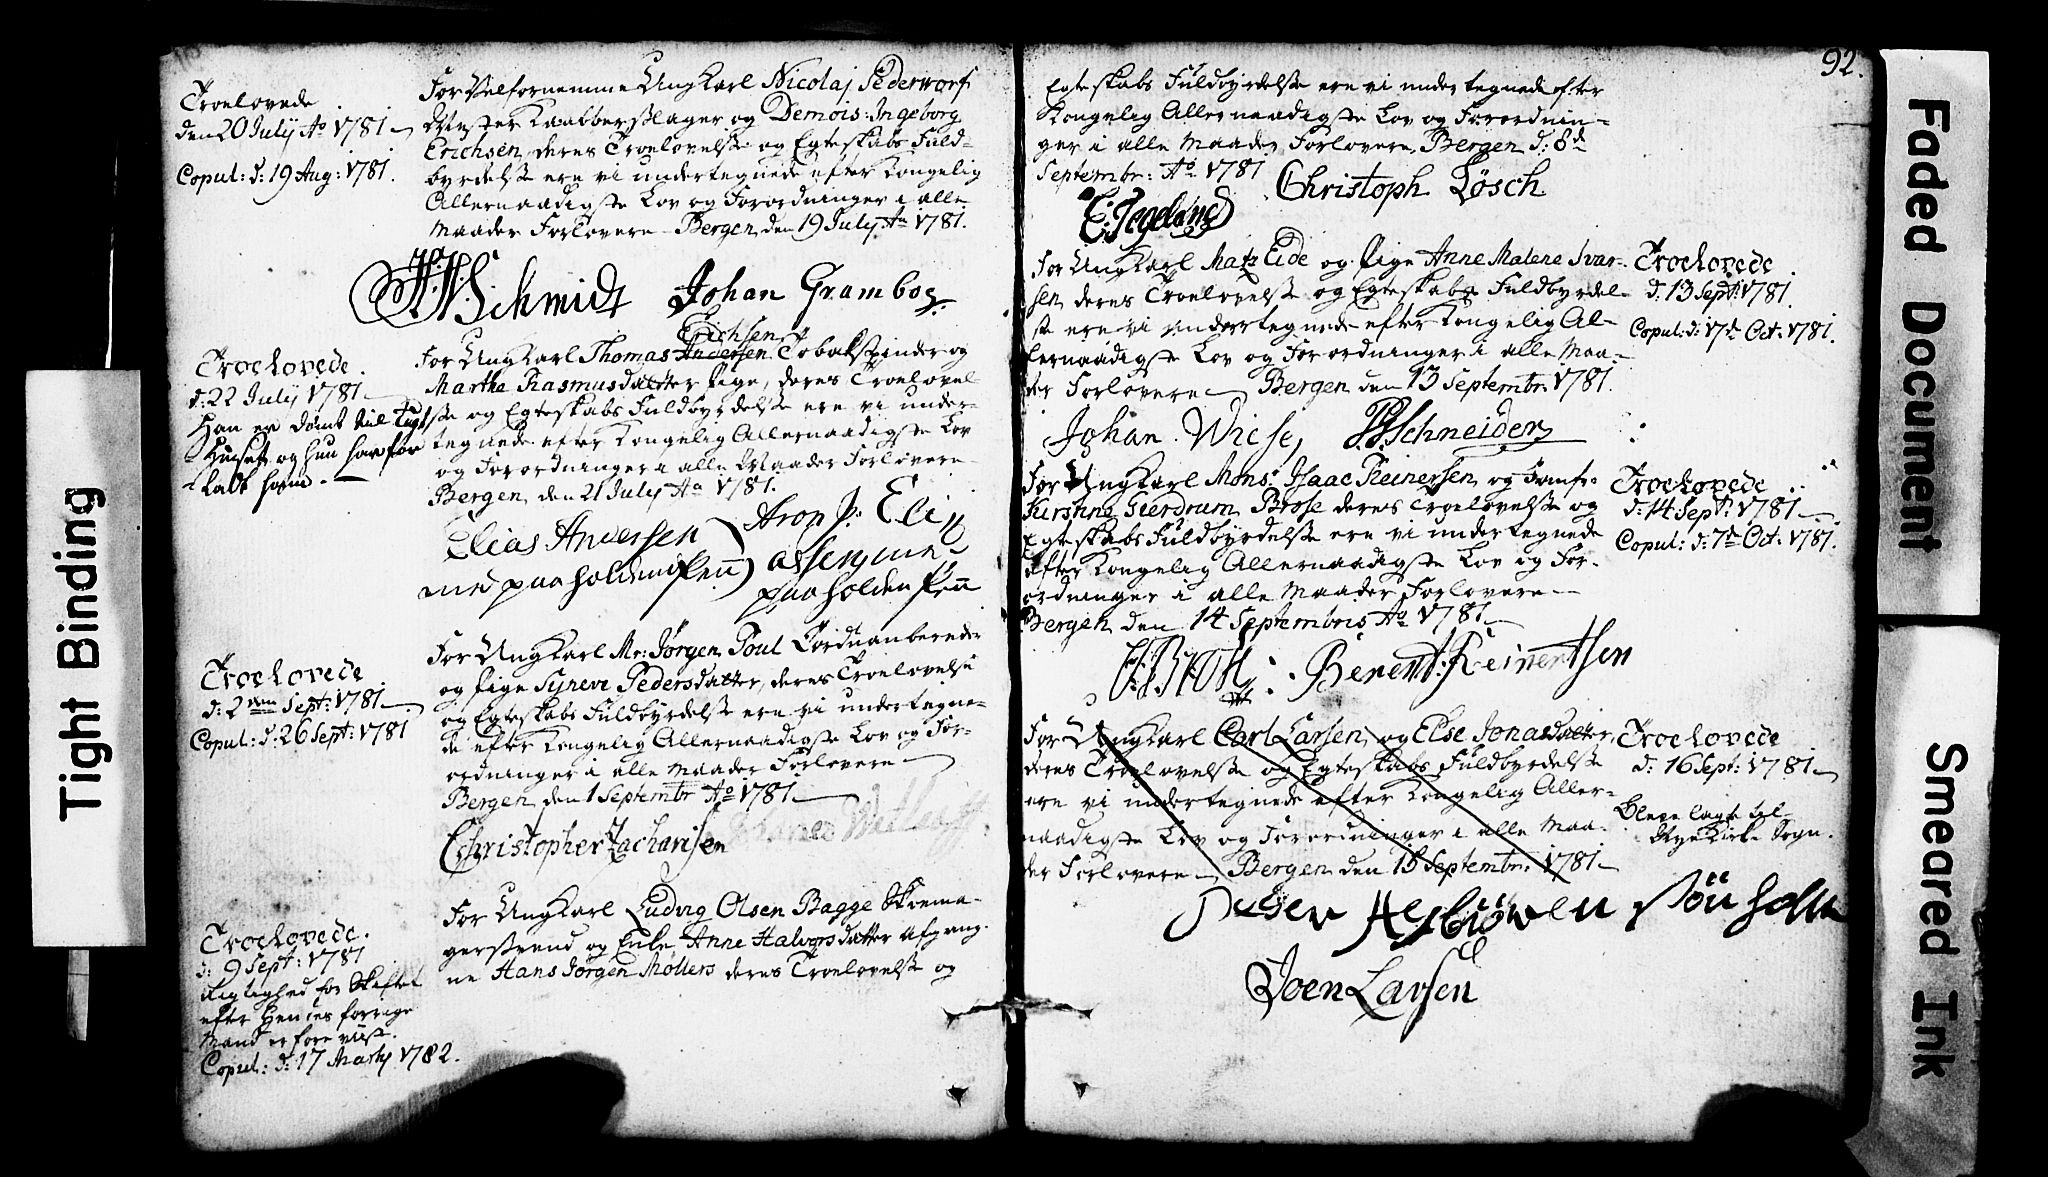 Troelovede
den 20 July Ao 1781
Copul: d: 19 Aug: 1781.
For Velfornemme Ung Karl Nicolaj Pederworf
Mester Kaabberslager og Demois: Ingeborg
Erichsen, deres Troelovelse og Egteskabs Fuld-
byrdelse ere vi undertegnede efter Kongelig
Allernaadigste Lov og Forordninger i alle
Maader Forlovere Bergen den 19 July Ao 1781.
Schmidt Johan Grambog
Troelovede.
d: 22 July 1781
Han er dømt til Tugt
Huset og hun har for
ladt ham.
Erichsen
For Ung Karl Thomas Andersen Tobakspinder og
Martha Rasmusdatter Pige, deres Troelovel-
se og Egteskabs Fuldbyrdelse ere vi under-
tegnede efter Kongelig Allernaadigste Lov
og Forordninger i alle Maader Forlovere
Bergen den 21 July Ao 1781.
Elias Andersen
med paaholden Pen
paaholden Pen
Troelovede
d: 2den Sept: 1781
Copul: d: 26 Sept: 1781
For Ung Karl Mr: Jørgen Poul Corduanbereder
og Pige Synneve Pedersdatter, deres Troelovelse
og Egteskabs Fuldbyrdelse ere vi undertegne-
de efter Kongelig Allernaadigste Lov og For-
ordninger i alle Maader Forlovere
Bergen den 1 Septembr Ao 1781
Christopher Zacharisen
Troelovede.
d: 9 Sept: 1781
Rigtighed for Skiftet
efter Hendes forrige
Mand er foreviist.
Copul: d: 17 Martj 1782.
For Ung Karl Ludvig Olsen Bagge Skoema-
gersvend og Enke Anne Halvorsdatter afgang-
ne Hans Jørgen Møllers deres Troelovelse og
92.
Egteskabs Fuldbyrdelse ere vi undertegnede efter
Kongelig Allernaadigste Lov og Forordnin-
ger i alle Maader Forlovere, Bergen d: 8de
Septembr: Ao 1781
Christoph Lösch
For Ung Karl Matz Eide og Pige Anne Malene Ivar-
sen, deres Troelovelse og Egteskabs Fuldbyrdel-
se ere vi undertegnede efter Kongelig Al-
lernaadigste Lov og Forordninger i alle Maa-
der Forlovere Bergen den 13 Septembr: 1781.
Troelovede
d: 13 Sept: 1781.
Copul: d: 17de Oct: 1781.
Johan Wiese Schneider
For Ung Karl Mons: Isaac Reinersen og Jomfr:
Kirstine Gierdrum Brose deres Troelovelse og
Egteskabs Fuldbyrdelse ere vi undertegnede
efter Kongelig Allernaadigste Lov og For-
ordninger i alle Maader Forlovere
Bergen den 14 Septembris Ao 1781
Troelovede
d: 14 Sept: 1781
Copul: d: 7de Oct: 1781.
Berent Reinertsen
For Ung Karl Carl Larsen, og Else Jonasdatter,
deres Troelovelse og Egteskabs Fuldbyrdelse
ere vi undertegnede efter Kongelig Aller-
naadigste Lov og Forordninger i alle Maa-
der Forlovere Bergen den 15 Septembr: 1781
Troelovede
d: 16 Sept: 1781
Bleve lagte til
Nye Kirke Sogn.
Joen Larsen
Tight Binding
Faded Document
Smeared Ink